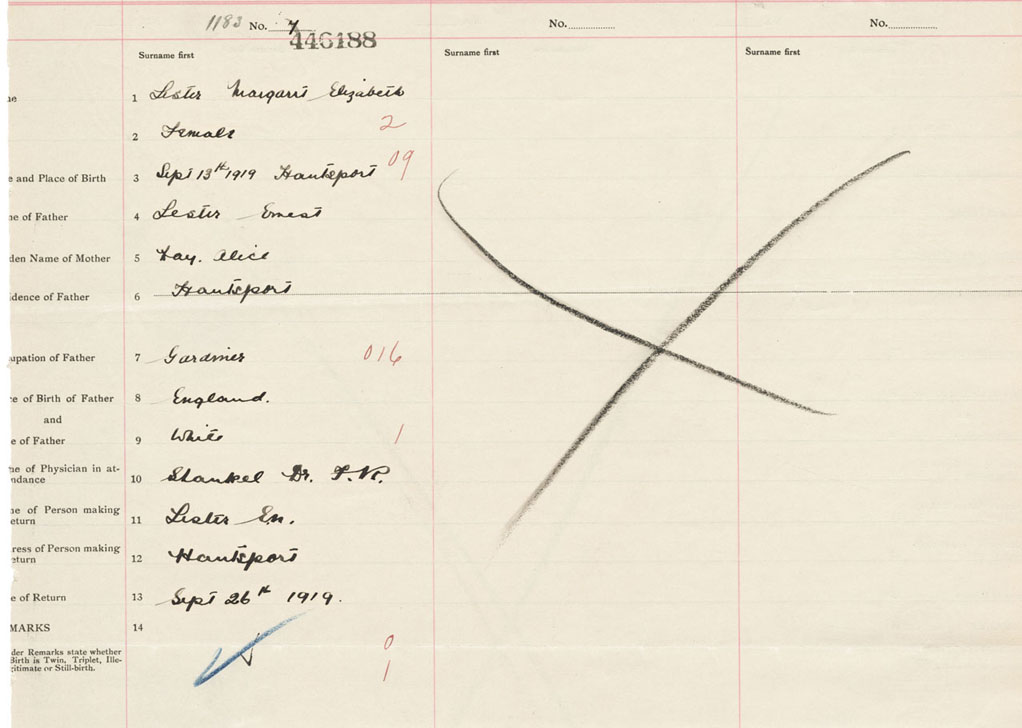 1183 No. 4 No. No.
446188
Surname first Surname first Surname first
me 1 Lester Margaret Elizabeth
2 Female 2
e and Place of Birth 3 Sept 13th 1919 Hantsport 09
ne of Father 4 Lester Ernest
den Name of Mother 5 Alice
idence of Father 6 Hantsport
upation of Father 7 Gardner 016
ce of Birth of Father 8 England.
and
e of Father 9 White 1
ne of Physician in at-
ndance 10 Dr.
ne of Person making
eturn 11 Lester
ress of Person making
eturn 12 Hantsport
e of Return 13 Sept 26th 1919.
MARKS 14
der Remarks state whether 0
Birth is Twin, Triplet, Ille-
gitimate or Still-birth. 1